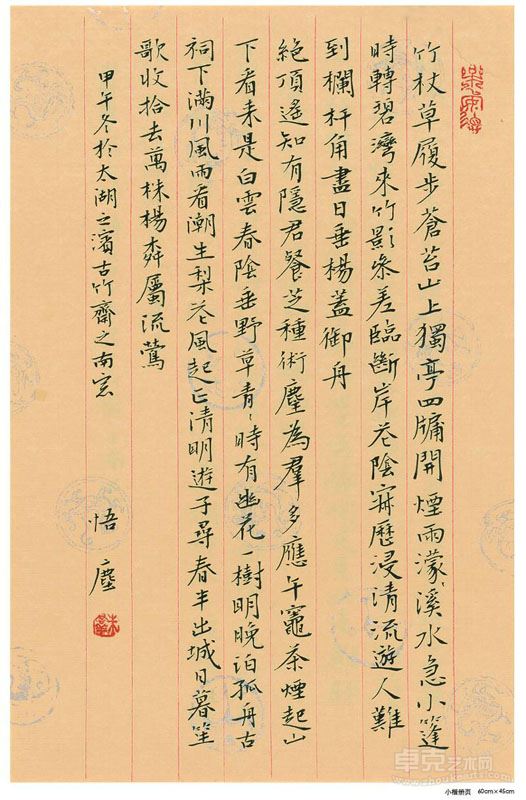 竹杖草履步蒼苔山上獨亭四牖開煙雨濛〻溪水急小篷
時轉碧灣來竹影參差臨斷岸花陰寂歷浸清流遊人難
到欄杆角盡日垂楊蓋御舟
絕頂遙知有隱君餐芝種術塵為羣多應午竈茶煙起山
下看來是白雲春陰垂野草青〻時有幽花一樹明晚泊孤舟古
祠下滿川風雨看潮生梨花風起正清明遊子尋春半出城日暮笙
歌收拾去萬株楊柳屬流鶯
甲午冬於太湖之濱古竹齋之南窓
悟塵
卓克艺术网
www.zhuokearts.com
小楷册页 60cm×45cm